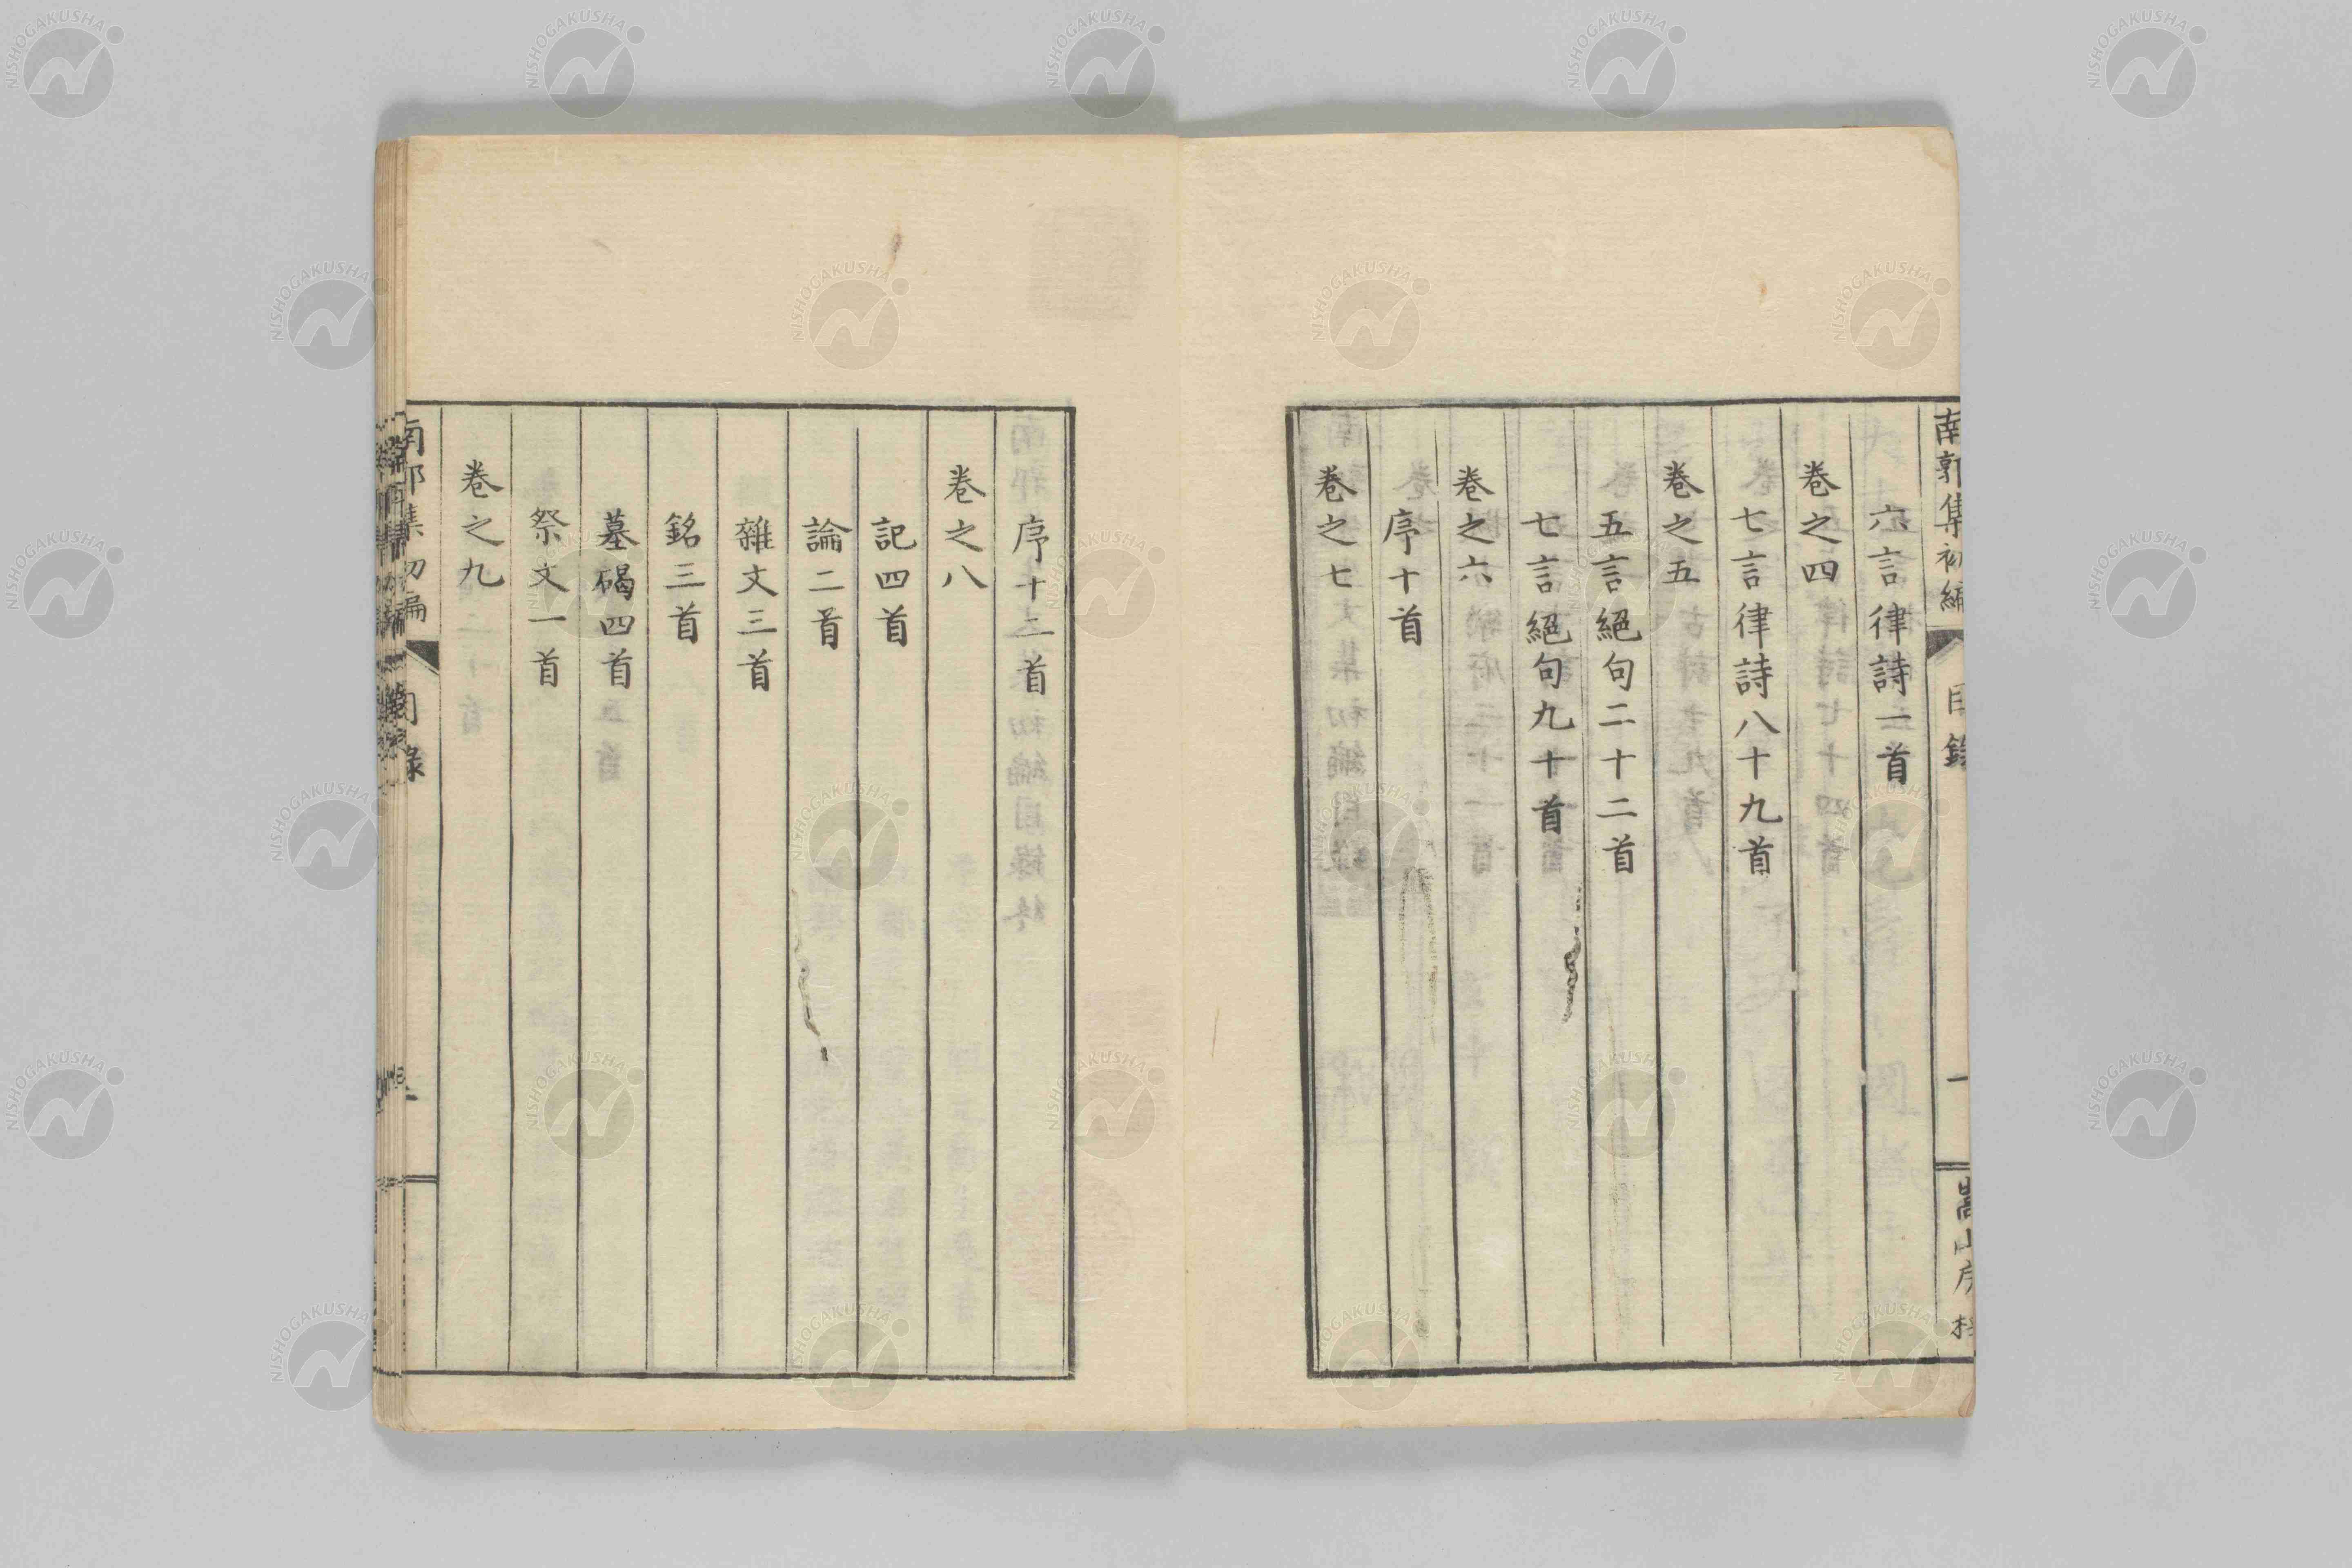 南郭集初編 目錄 一 嵩山房
六言律詩一首
卷之四
七言律詩八十九首
卷之五
五言絕句二十二首
七言絕句九十首
卷之六
序十首
卷之七
序十二首
卷之八
記四首
論二首
雜文三首
銘三首
墓碣四首
祭文一首
卷之九
南郭集初編 目錄
NISHOGAKUSHA